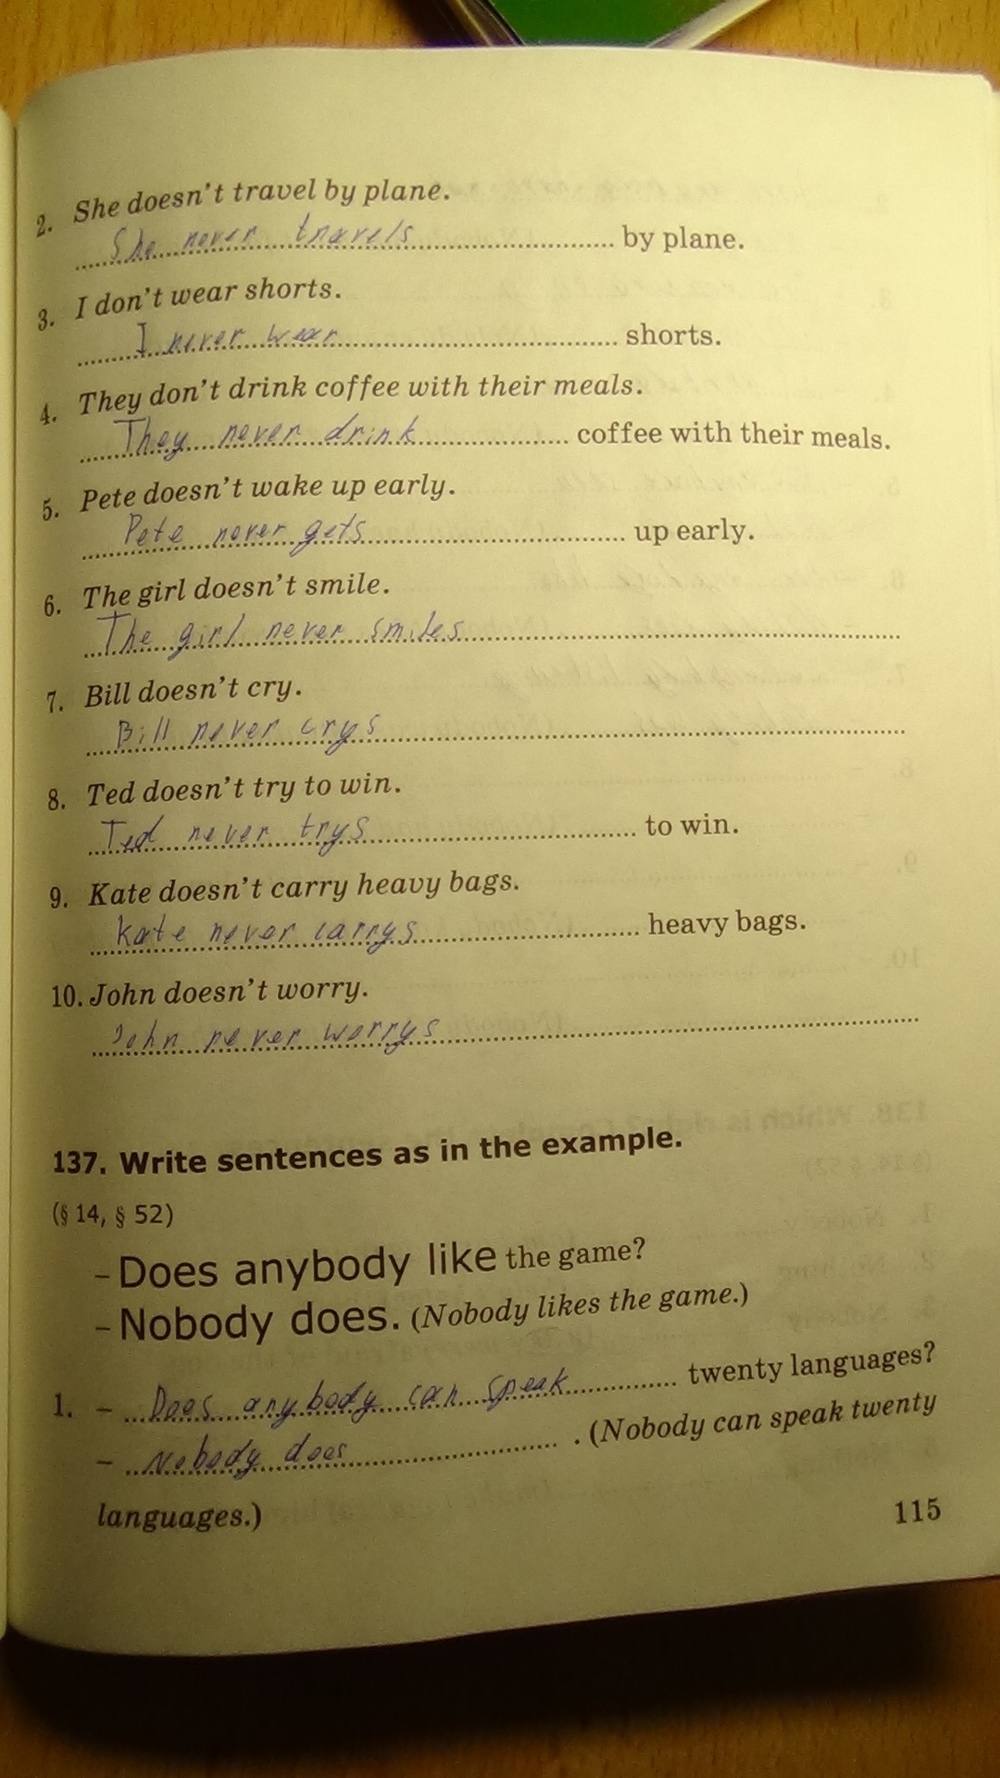 2. She doesn't travel by plane.
She never travels by plane.
3. I don't wear shorts.
I never wear shorts.
4. They don't drink coffee with their meals.
They never drink coffee with their meals.
5. Pete doesn't wake up early.
Pete never gets up early.
6. The girl doesn't smile.
The girl never smiles
7. Bill doesn't cry.
Bill never crys
8. Ted doesn't try to win.
Ted never trys to win.
9. Kate doesn't carry heavy bags.
Kate never carrys heavy bags.
10. John doesn't worry.
John never worrys
137. Write sentences as in the example.
(§ 14, § 52)
– Does anybody like the game?
– Nobody does. (Nobody likes the game.)
1. – Does anybody can speak twenty languages?
– Nobody does . (Nobody can speak twenty
languages.)
115